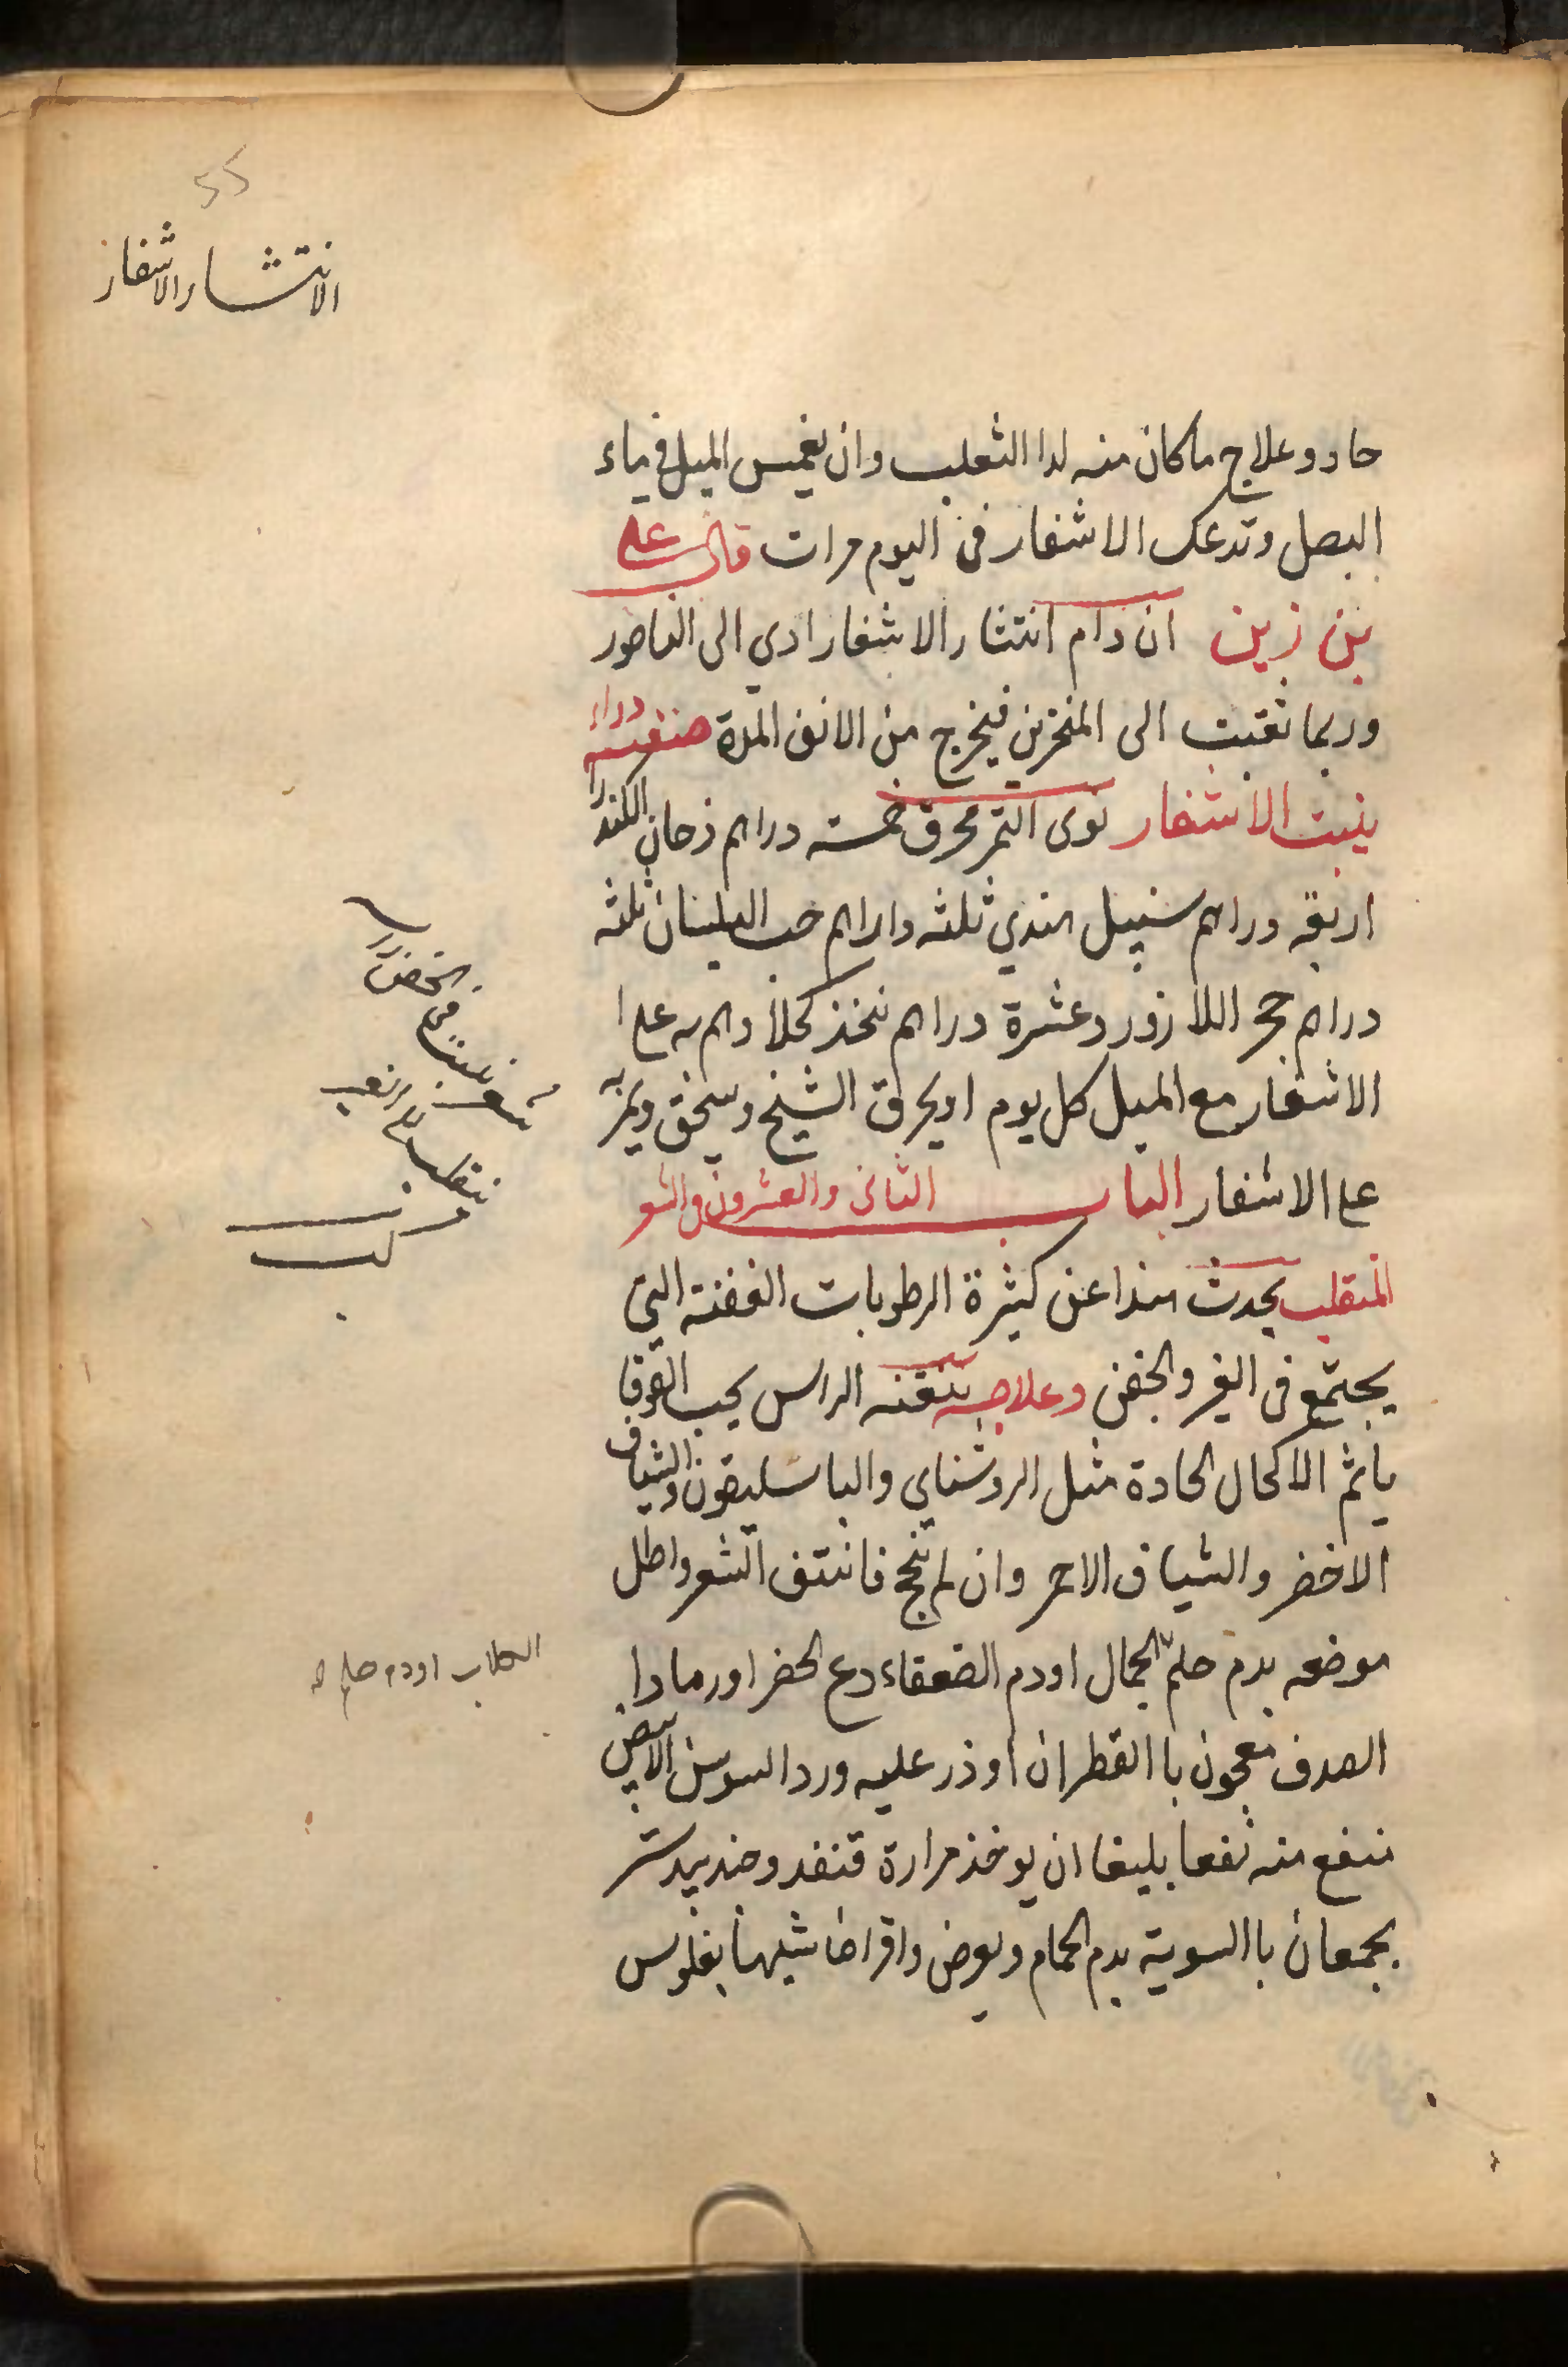 55
الانتشار الاشفار
حاد وعلاج ماكان منه لدا الثعلب وان يغمس الميل فى ماء
البصل وتدعك الاشفار فى اليوم مرات قال على
بن زين ان دام انتثار الاشفار ادي الى الناصور
وربما نقبت الى المنخرين فيخرج من الانف المدة صنفته دواء
ينبت الاشفار نوى التمر محرق خمسه دراهم دخان الكندر
اربعة دراهم سنبل هندي ثلثه داراهم حب البلسان ثلثه
دراهم حجر اللازورد عشرة دراهم تتخذ كحلا وامر به على
الاشفار مع الميل كل يوم او يحرق الشيح وسحق ويمر به
على الاشفار الباب الثانى والعشرون فى الشعر
المنقلب يحدث هذا عن كثرة الرطوبات العفنة التى
يجتمع فى العين والجفن وعلاجه تنقيه الراس بحب القوقا
يا ثم الاكحال الحادة مثل الروشناي والباسليقون والشياف
الاخضر والشياف الاحمر وان لم تنجح فانتف الشعر واطل
موضعه بدم حلم الجمال او دم الضفعاء دع الخضر او رمادا
الكلاب او دم حلم
الصدف معجون باالقطران او ذر عليه ورد السوسن الابيض
ننفع منه نفعا بليغا ان يوخذ مرارة قنفد وجندبيدستر
يجمعان باالسوية بدم الحمام ويوضع واقراصا شبيها بفلوس